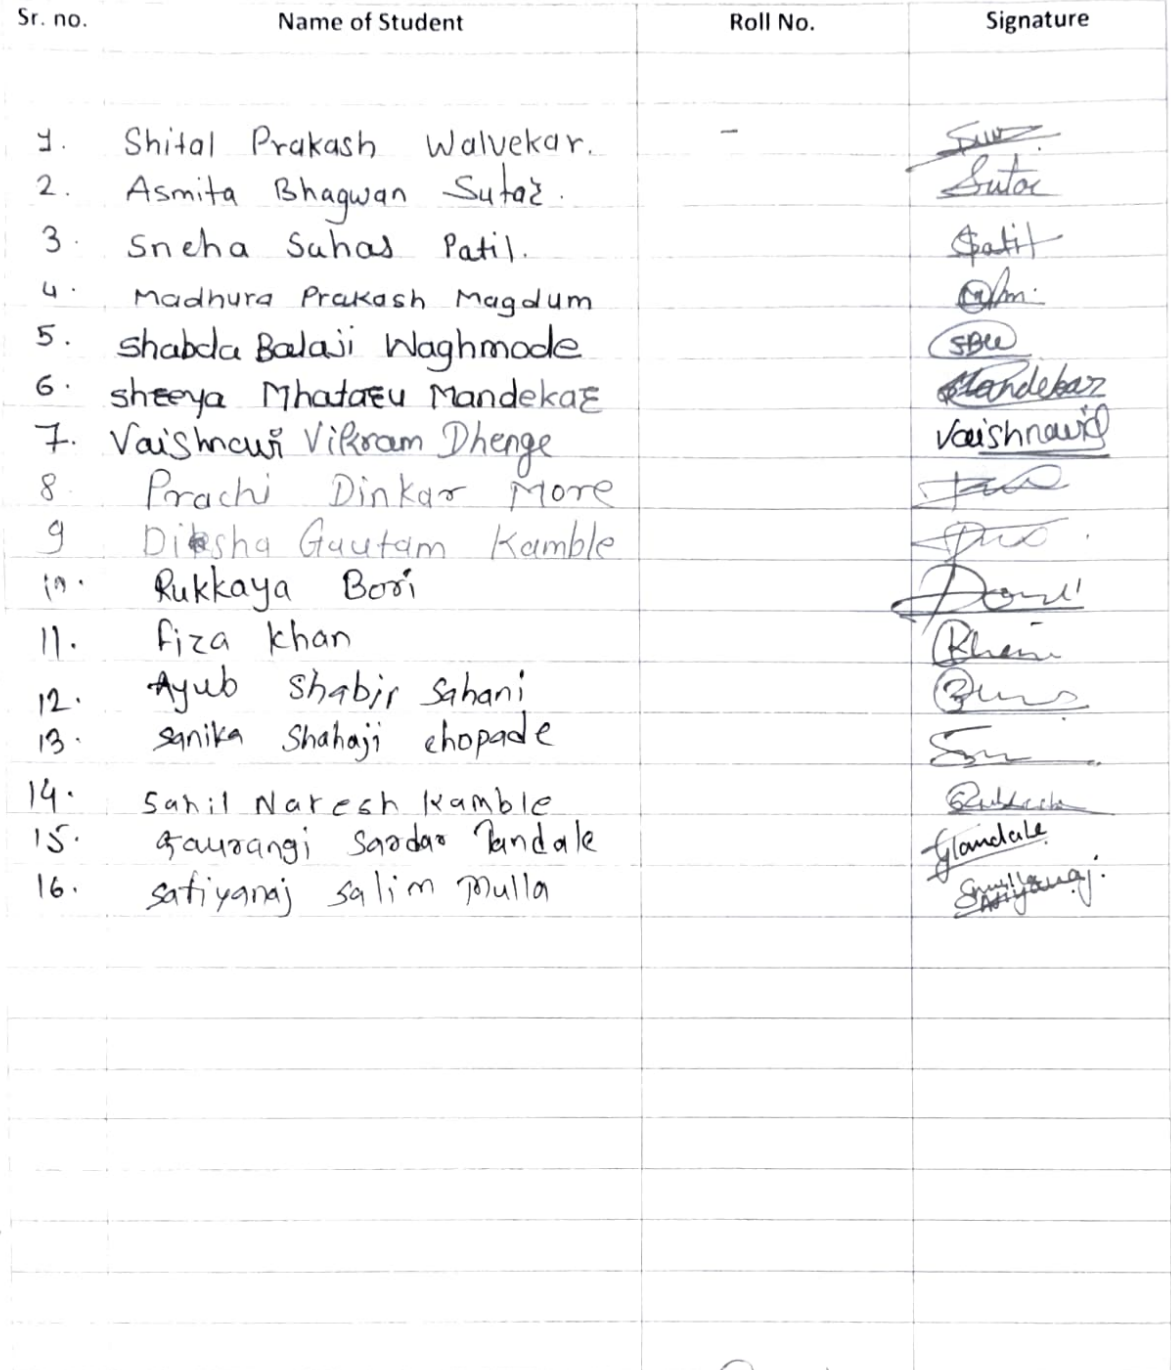 Sr. no. Name of Student Roll No. Signature
1. Shital Prakash Walvekar. -
2. Asmita Bhagwan Sutar. Sutar
3. Sneha Suhas Patil. Spatil
4. Madhura Prakash Magdum
5. Shabda Balaji Waghmode SBW
6. shreya Mhataru Mandekar Mandekar
7. Vaishnavi Vikram Dhenge Vaishnavi
8 Prachi Dinkar More
9 Diksha Gautam Kamble
10. Rukkaya Bori
11. Fiza Khan Khan
12. Ayub Shabir Sahani
13. Sanika Shahaji chopade
14. Sahil Naresh Kamble
15. Gaurangi Sardar Tandale
16. Safiyanaj Salim Mulla